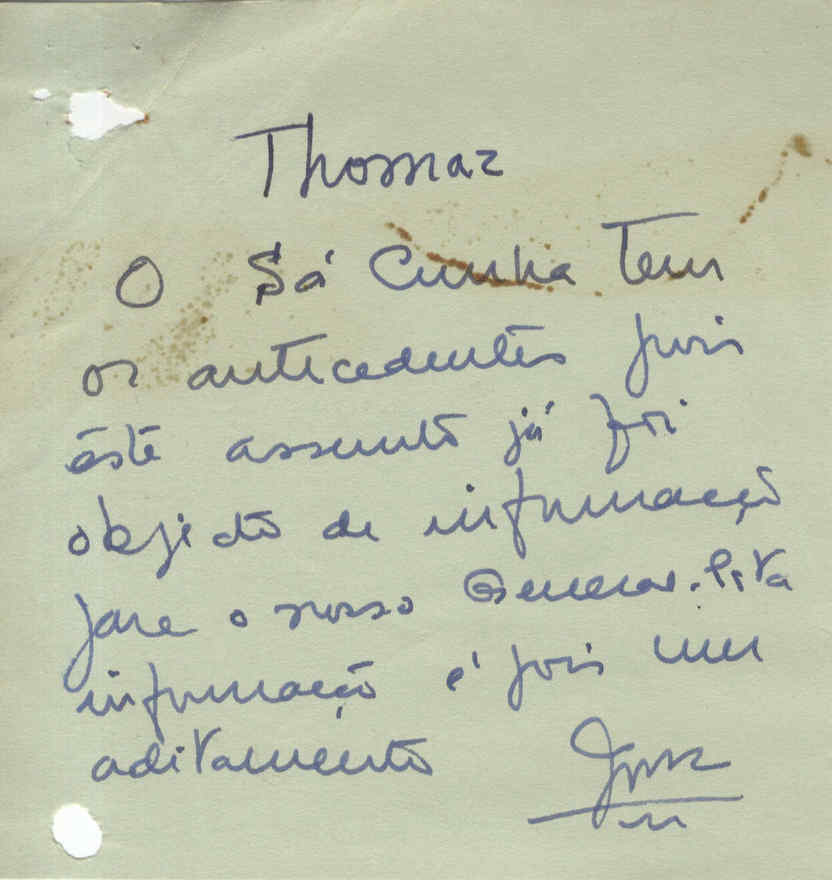 Thomaz
O Sá Cunha tem
os antecedentes pois
êste assunto já foi
objecto de informação
para o nosso General. Esta
informação é pois um
aditamento